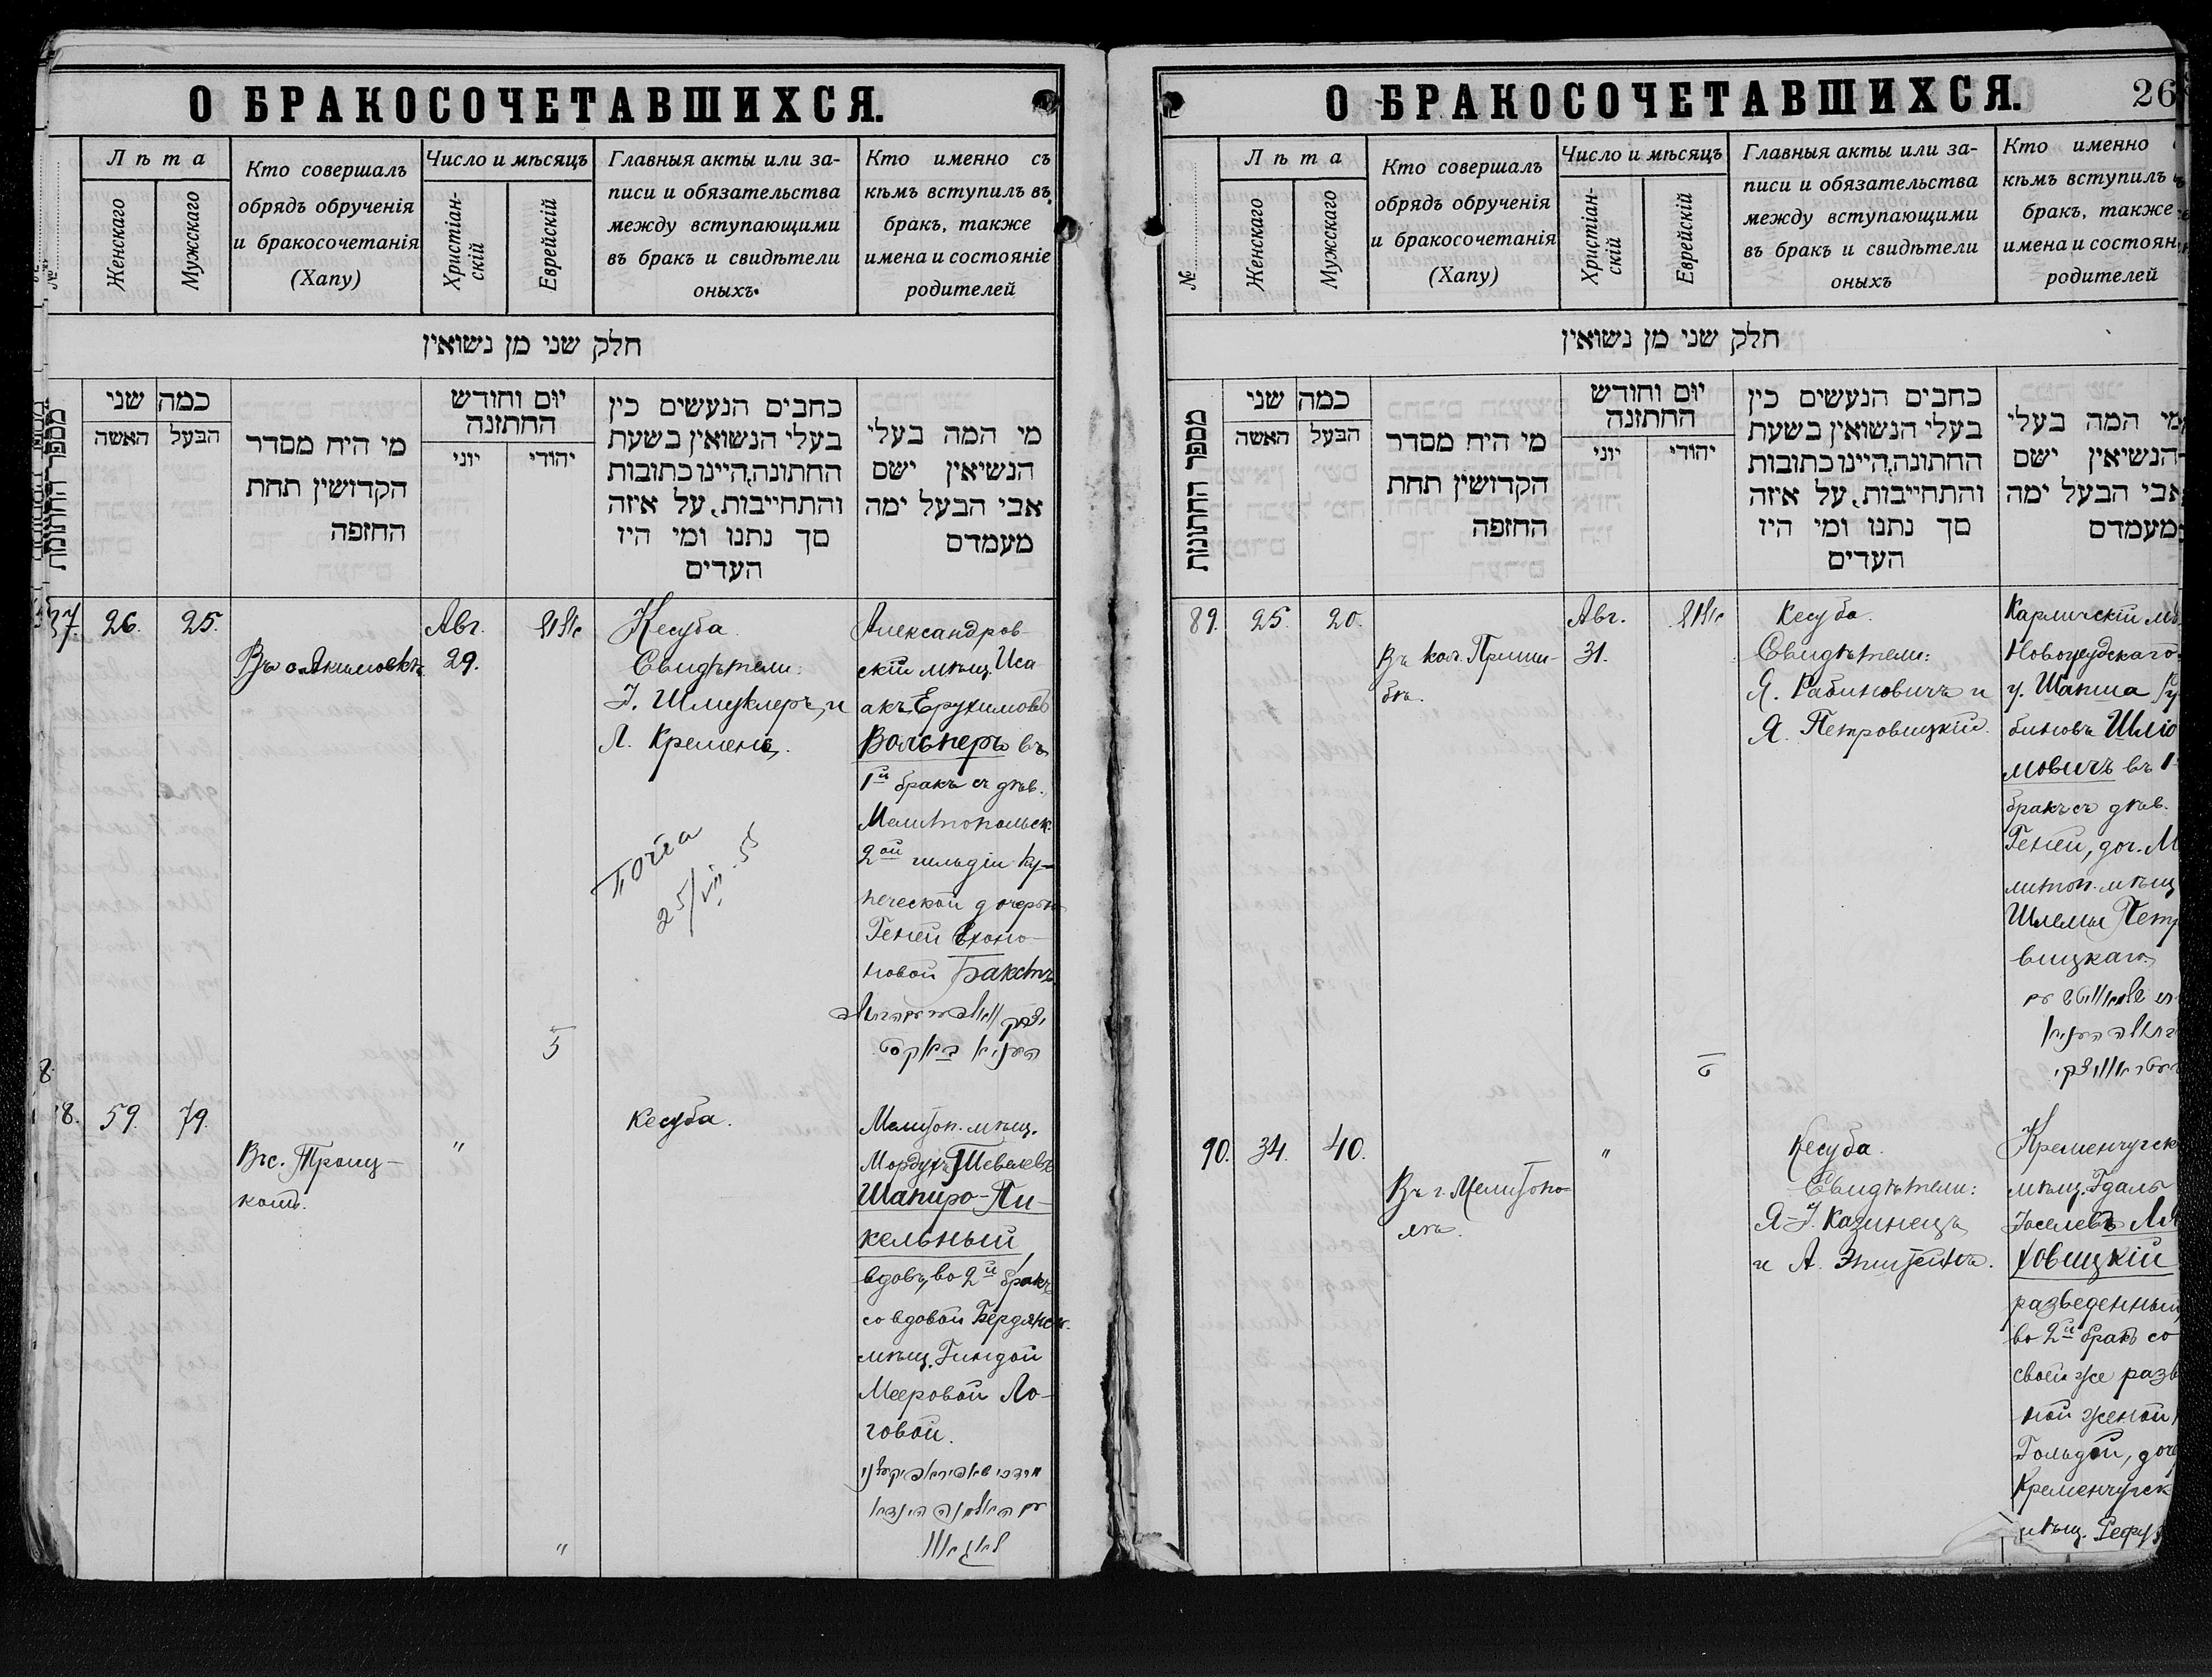 О БРАКОСОЧЕТАВШИХСЯ.
Лѣта
Женскаго
Мужскаго
Кто совершалъ
обрядъ обрученія
и бракосочетанія
(Хапу)
Число и мѣсяцъ
Христіан-
скій
Еврейскій
Главныя акты или за-
писи и обязательства
между вступающими
въ бракъ и свидѣтели
оныхъ.
Кто именно съ
кѣмъ вступилъ въ
бракъ, также
имена и состояніе
родителей
חלק שני מן נשואין
כמה שני
האשה
הבעל
מי היח מסדר
הקדושין תחת
החזפה
יום וחודש
החתזנה
יוני
יהודי
כחבים הנעשים כין
בעלי הנשואין בשעת
החתונה,היינו כתובות
והתחייבות, על איזה
סך נתנו ומי היז
העדים
מי המה בעלי
הנשיאין ישם
אבי הבעל ימה
מעמדם
37.
26.
25.
Въ с. Акимовкѣ
Авг.
29.
אלול
5
Кесуба.
Свидѣтели:
І. Шмуклеръ, и
Л. Кремень.
Почта
25/VII.55
Александров-
скій мѣщ. Иса
акъ Ерухимовъ
Вольперъ въ
1й бракъ съ дѣв.
Мелитопольск.
2ой гильдіи ку-
печеской дочерью
Геней
новой Бакстъ.
88.
59.
79.
Въ с. Троиц-
комъ.
"
"
Кесуба.
Мелитоп. мѣщ.
Мордухъ Шевелевъ
Шапиро-Пи-
кельный,
вдовъ, во 2й бракъ
со вдовой Бердянск.
мѣщ. Гиндой
Мееровой Ло-
говой.
О БРАКОСОЧЕТАВШИХСЯ.
26
№
Лѣта
Женскаго
Мужскаго
Кто совершалъ
обрядъ обрученія
и бракосочетанія
(Хапу)
Число и мѣсяцъ
Христіан-
скій
Еврейскій
Главныя акты или за-
писи и обязательства
между вступающими
въ бракъ и свидѣтели
оныхъ
Кто именно
кѣмъ вступилъ
бракъ, также
имена и состоян
родителей
חלק שני מן נשואין
מספר החתונות
כמה שני
האשה
הבעל
מי היח מסדר
הקדושין תחת
החזפה
יום וחודש
החתזנה
יוני
יהודי
כחבים הנעשים כין
בעלי הנשואין בשעת
החתונה,היינו כתובות
והתחייבות, על איזה
סך נתנו ומי היז
העדים
מי המה בעלי
הנשיאין ישם
אבי הבעל ימה
מעמדם
89.
25.
20.
Въ кол. Приши-
бѣ.
Авг.
31.
אלול
Кесуба.
Свидѣтели:
Я. Рабиновичъ и
Я. Петровицкій.
у. Шапша
биновъ Шлiо
мовичъ въ 1
бракъ съ дѣв.
Геней, доч. М
литоп. мѣщ
Шлемы Петр
вицкаго.
90.
34.
40.
Въ г. Мелитопо-
лѣ.
"
Кесуба.
Свидѣтели:
Я-І. Казинецъ
и А. Эпштейнъ.
Кременчугск
мѣщ. Гдаль
Іоселевъ Ля
ховицкій
разведенный,
во 2й бракъ со
своей же разв
ной женой,
Гольдой, доч
Кременчугск
мѣщ.